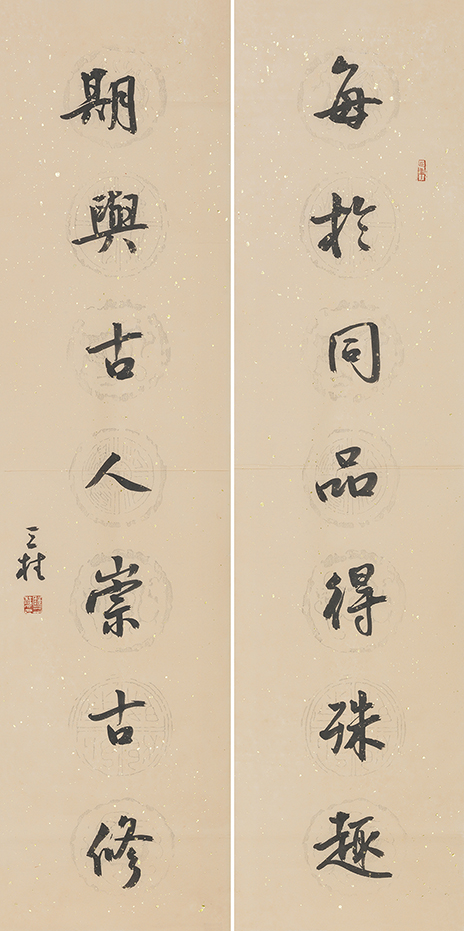 每於同品得殊趣
期與古人崇古修